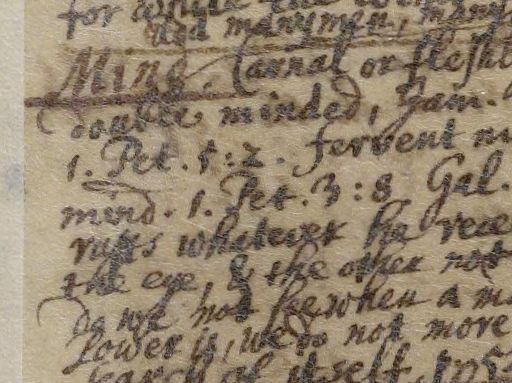 for
and manymen, many
Mind. Carnal or fleshl
double minded, Jam.
1. Pet. 5:2. fervent m
mind. 1. Pet. 3:8 Gal.
whatever he rece
the eye, & the other not
Do we not see when a m
lower is, we do not more
search of itself